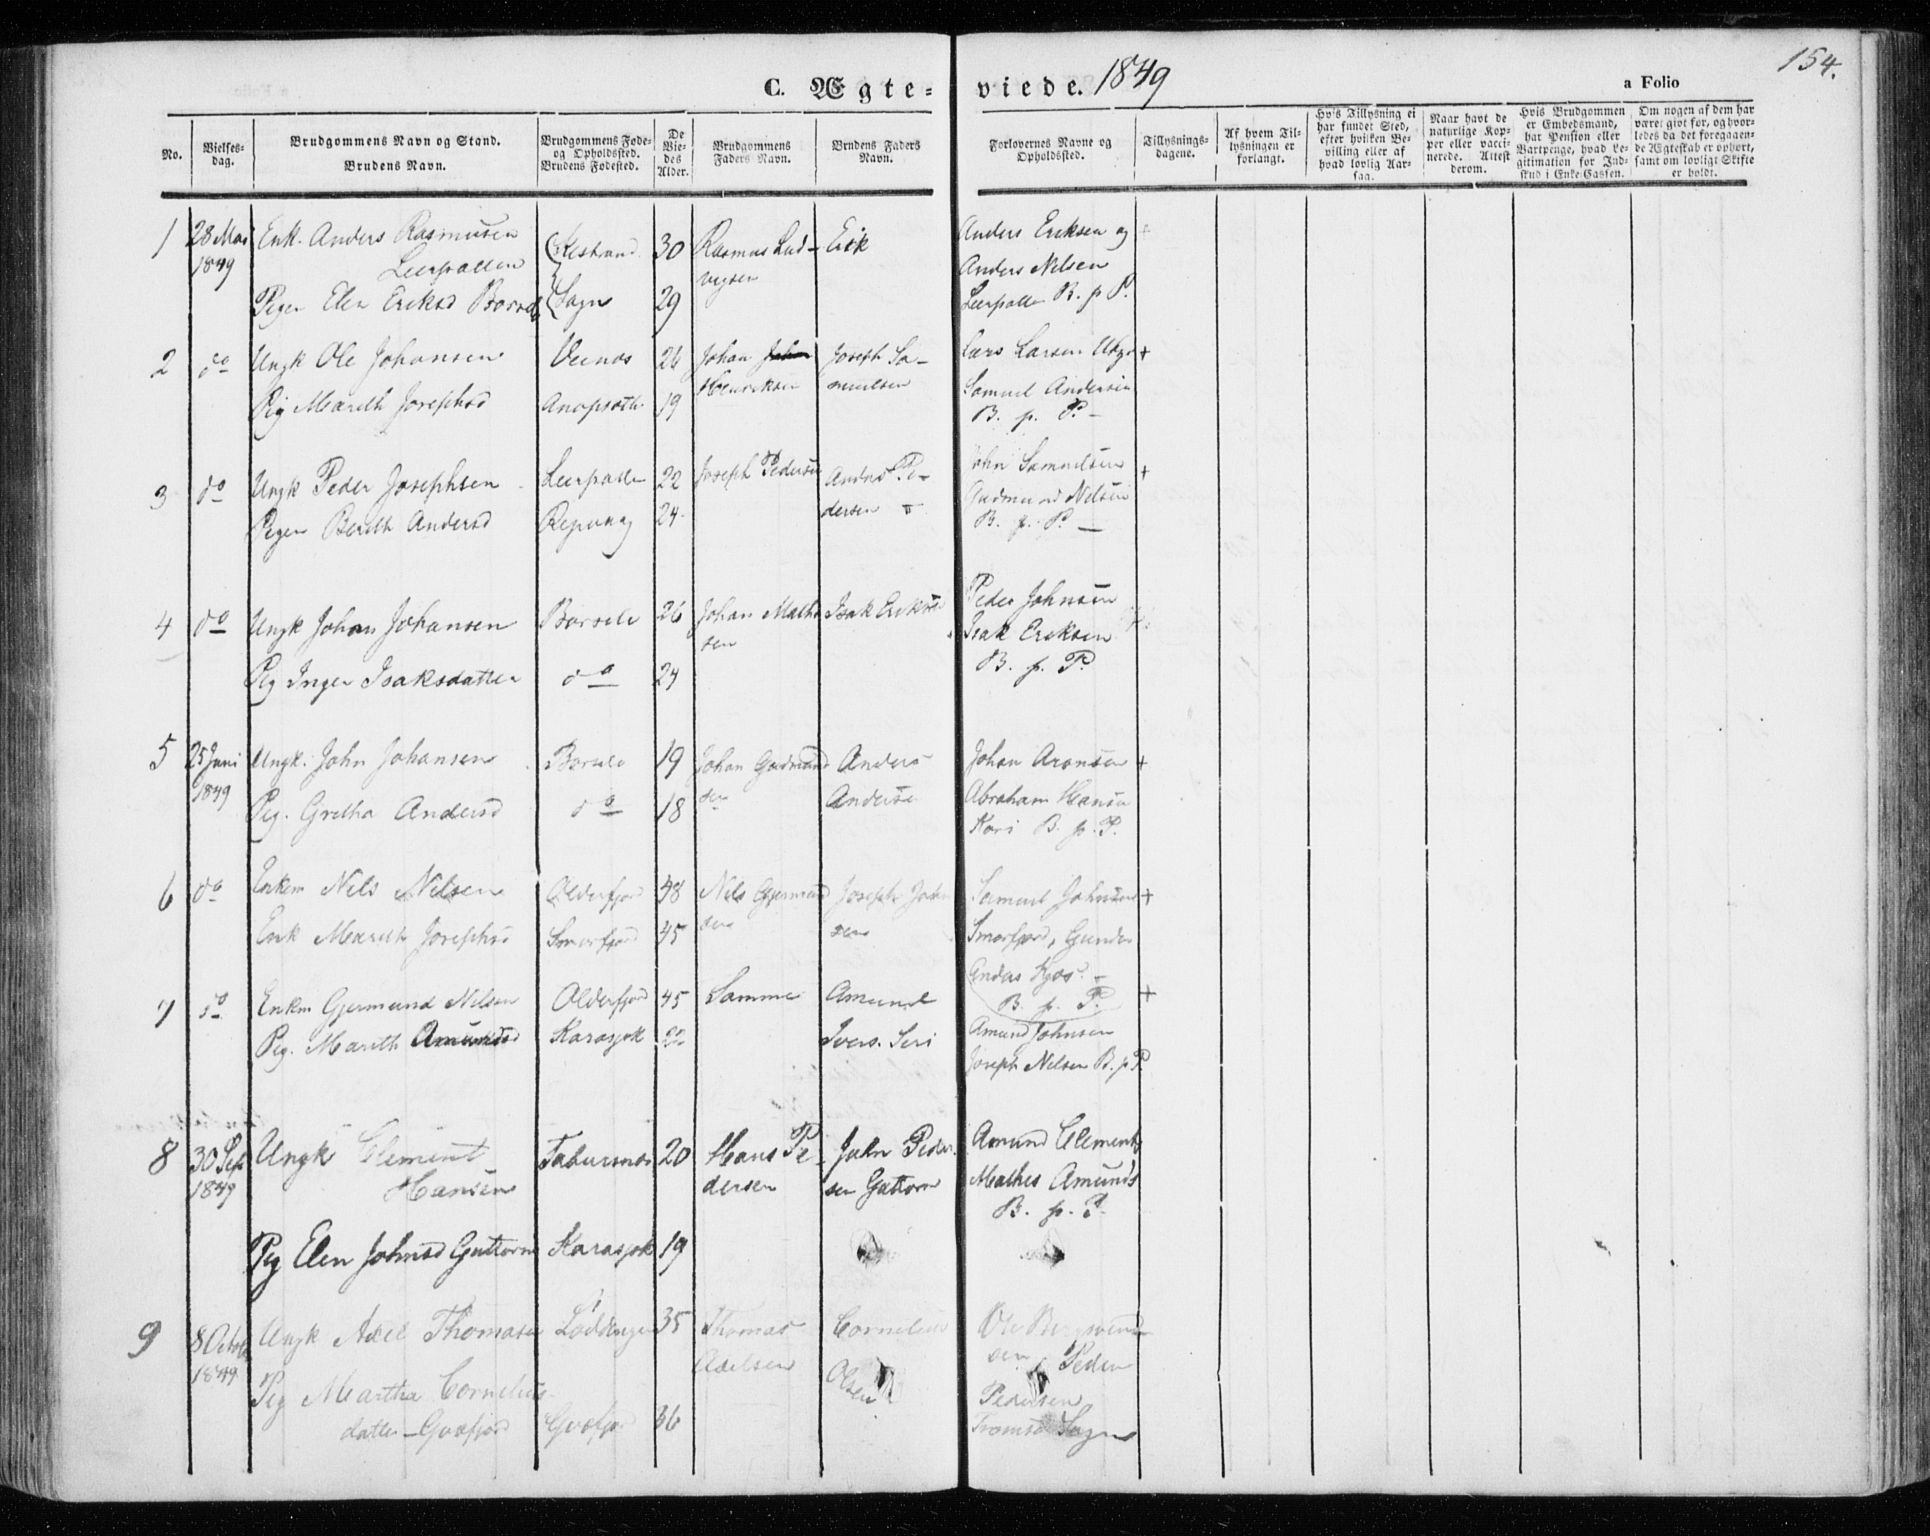 154.
C. Ægte=viede. 1849
a Folio
No.
Vielses-
dag.
Brudgommens Navn og Stand.
Brudens Navn.
Brudgommens Føde-
og Opholdssted.
Brudens Fødested.
De
Vie-
des
Alder.
Brudgommens
Faders Navn.
Brudens Faders
Navn.
Forlovernes Navne og
Opholdssted.
Tillysnings-
dagene.
Af hvem Til-
lysningen er
forlangt.
Hvis Tillysning ei
har fundet Sted,
efter hvilken Be-
villing eller af
hvad lovlig Aar-
sag.
Naar havt de
naturlige Kop-
per eller vacci-
nerede. Attest
derom.
Hvis Brudgommen
er Embedsmand,
har Pension eller
Vartpenge, hvad Le-
gitimation for Ind-
skud i Enke-Cassen.
Om nogen af dem har
været givt før, og hvor-
ledes da det foregaaen-
de Ægteskab er ophørt,
samt om lovligt Skifte
er holdt.
1 28 Mai 1849
Enk. Anders Rasmusen
Leerpollen
Pigen Elen Eriksd Borsele
Kistrand
Sogn
30
29
Rasmus Lud-
vigsen
Erik
Anders Eriksen og
Anders Nilsen
Leerpolle B. p P.
2 do
Ungk Ole Johansen
Pig Mareth Josephsd
Veines
26
19
Johan
Henriksen
Joseph Sa-
muelsen
Lars Larsen
Samuel Andersen
B. p. P. -
+
3 do
Ungk Peder Josephsen
Pigen Berith Andersd
Leerpolle
Repvaag
22
24
Joseph Pedersen
Anders Pe-
dersen
John Samuelsen
Gudmund Nilsen
B. p. P. -
+
4 do
Ungk Johan Johansen
Pig Inger Isaksdatter
Borsele
do
26
24
Johan Mathi
sen
Isak Eriksen
Peder Johnsen
Isak Eriksen
B. p. P.
5 25 Juni 1849
Ungk. John Johansen
Pig. Gretha Andersd
Borsele
do
19
18
Johan Gudmund
sen
Anders
Andersen
Johan Aronsen
Abraham Hansen
Kari B. p. P.
+
6 do
Enkem Nils Nilsen
Enk Mareth Josephsd
Olderfjord
Smørfjord
48
45
Nils Gjermund
sen
Joseph John
sen
Samuel Johnsen
Smørfjord, Gunder
Anders
B. p. P.
+
7 do
Enkm Gjermund Nilsen
Pig. Marith Amundsd
Olderfjord
Karasjok
45
22
Samme
Amund
Ivers. Siri
Amund Johnsen
Joseph Nilsen B. p P.
+
8 30 Sep 1849
Ungk Clement
Hansen
Pig Elen Johnsd Guttorm
Karasjok
20
19
Hans Pe-
dersen
John Peder
sen Guttorm
Amund Clements
Mathis Amunds
B. p. P.
9 8 Octob 1849
Ungk Axel Thomasen
Pig Martha Cornelius-
datter - Gvæfjord
Lødingen
Gvæfjor
35
36
Thomas
Axelsen
Cornelius
Olsen
Ole
sen, Peder
Pedersen
Tromsø Sogn